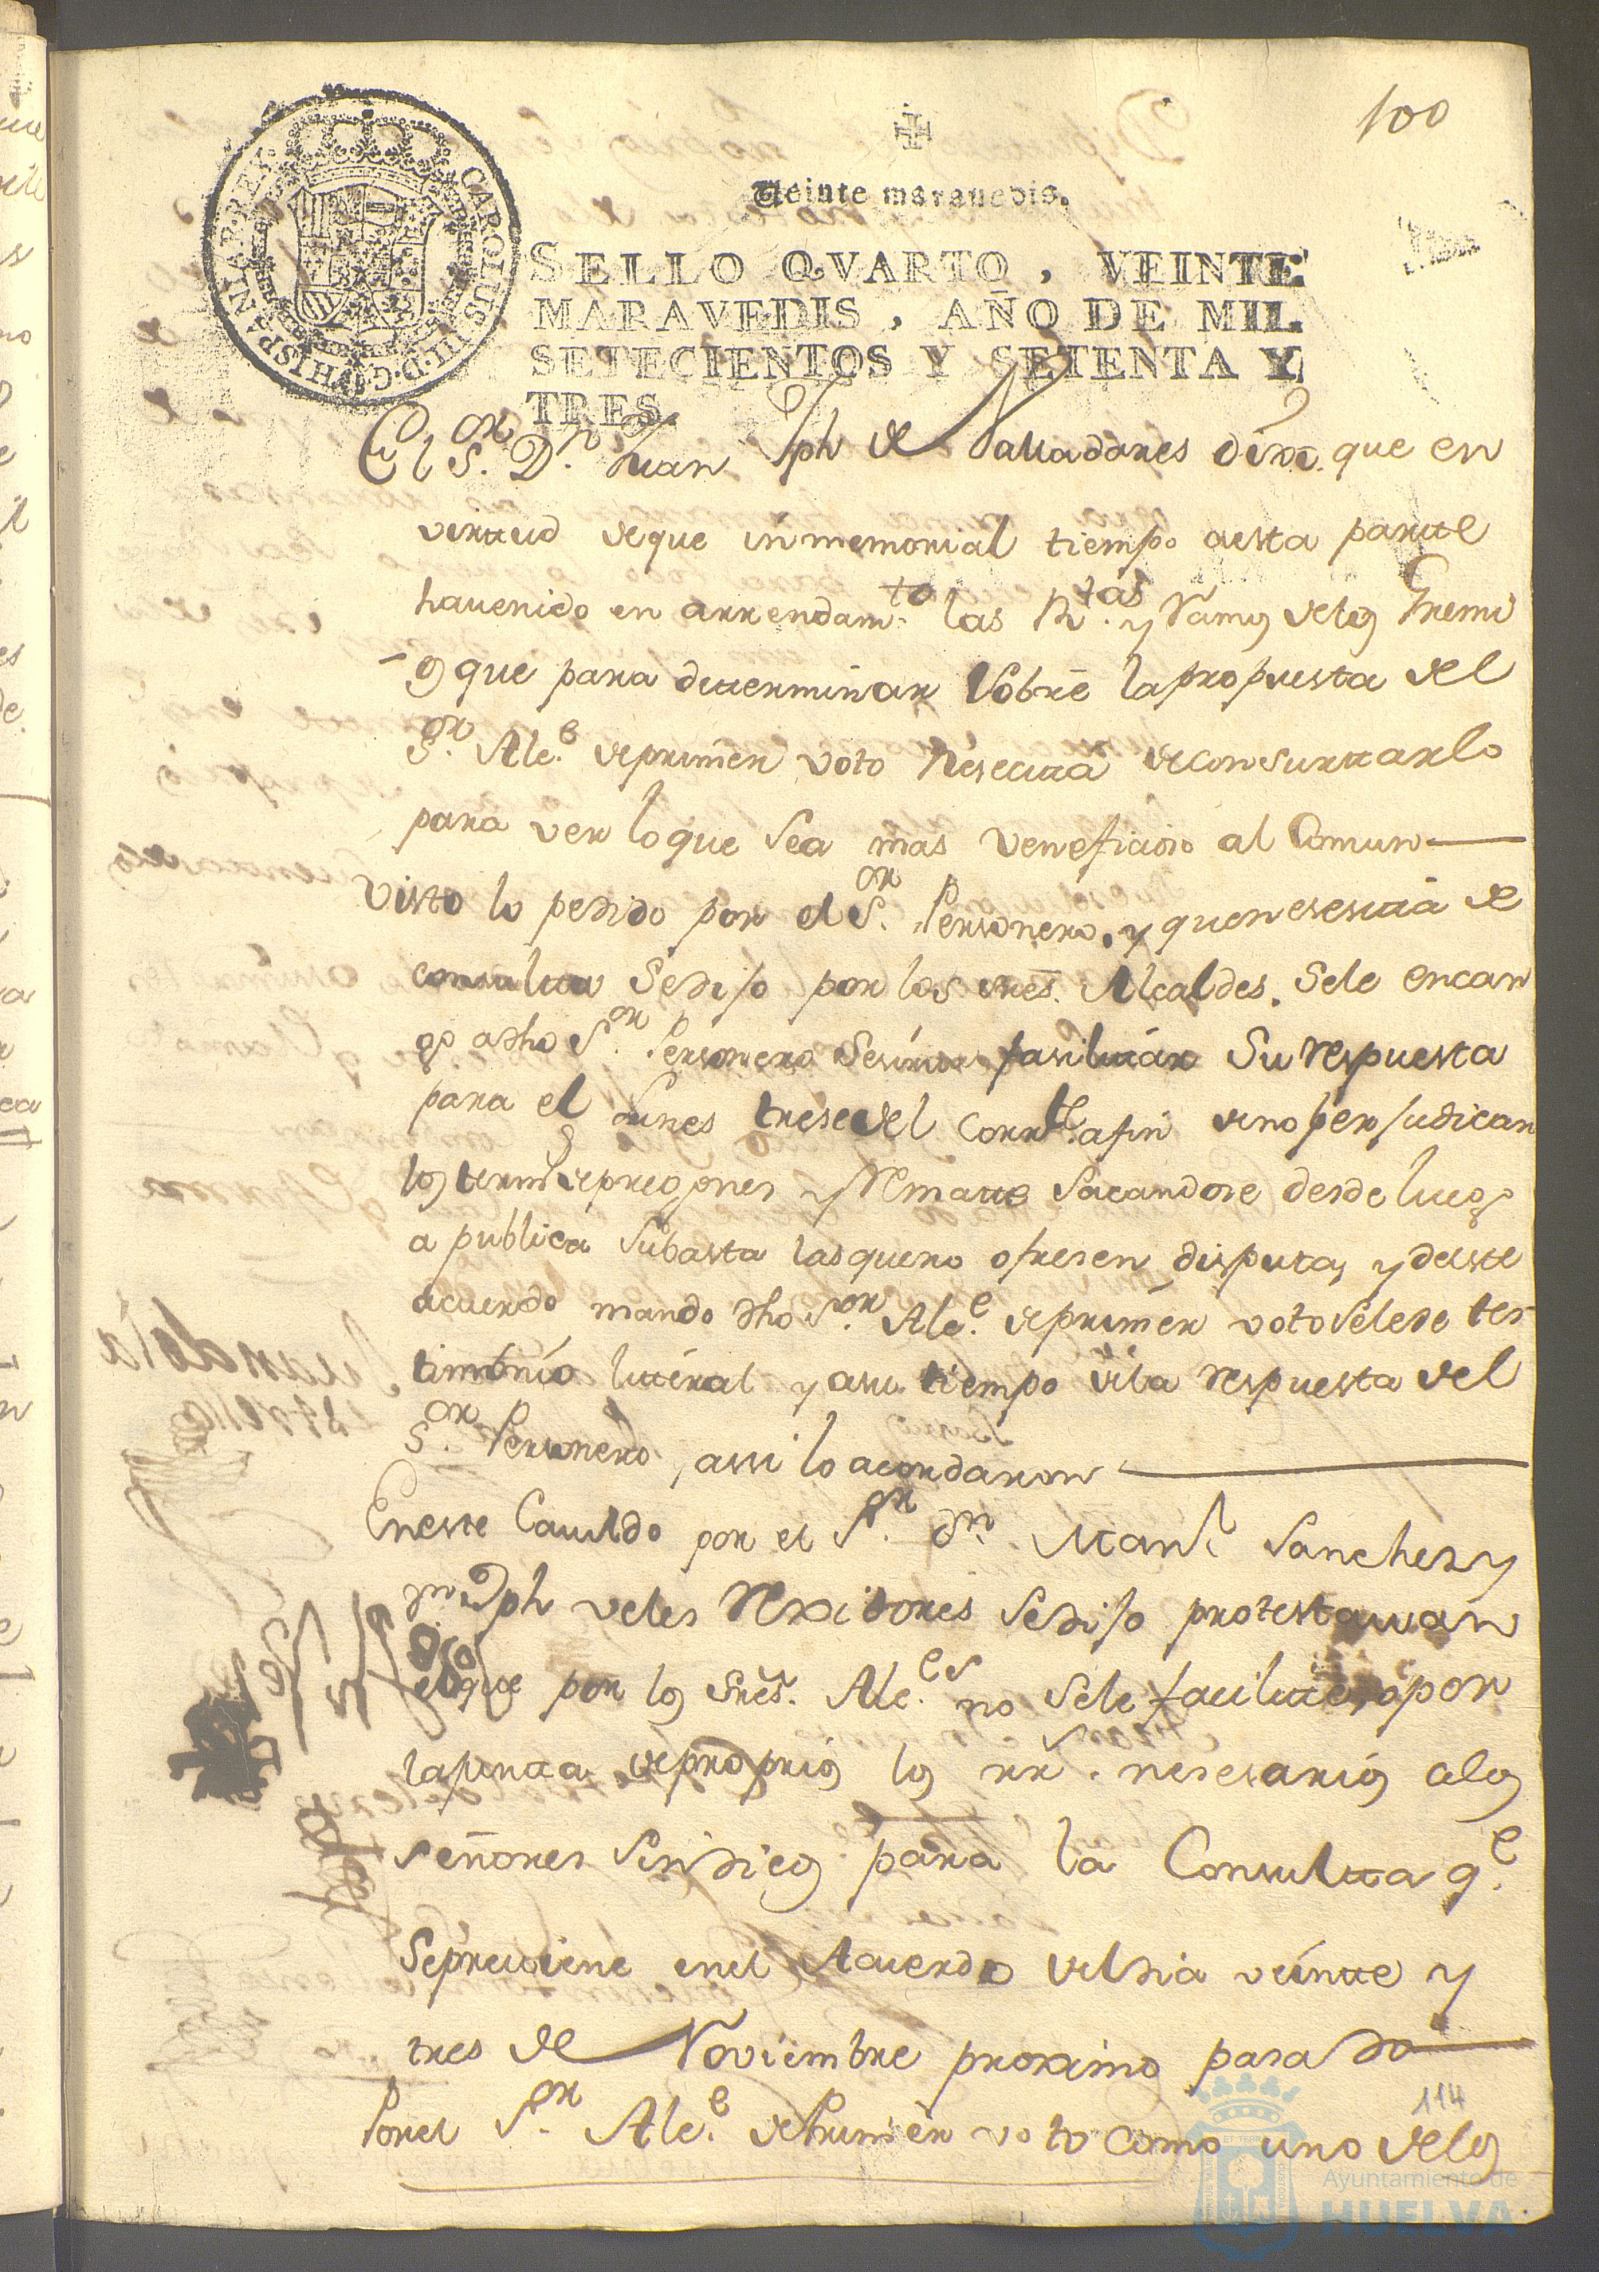 100
Veinte maravedis.
SELLO QVARTO, VEINTE
MARAVEDIS, AÑO DE MIL
SETECIENTOS Y SETENTA Y
TRES.
CAROLUS III D G HISPANIAR REX
El S.or D.n Juan Jph de Valladares dixo que en
virtud de que inmemorial tiempo aesta parte
havenido en arrendam.to las R.tas y Ramos delos Gremi
-os que para determinar sobre lapropuesta del
S.or Alc.e deprimer voto nesecita deconsurtarlo
para ver loque sea mas veneficioso al Comun
Visto lo pedido por el S.or Personero, y quenesesita de
consulta sedijo por los sres. Alcaldes. sele encar
go adho S.or Personero facilitar su respuesta
para el Lunes trese del corr.te afin deno perjudicar
los term.s depregones y Remate sacandose desde luego
a publica subasta lasqueno ofresen disputa, y deeste
acuerdo mando dho S.or Alc.e deprimer voto selede tes
timonio literal y asu tiempo dela respuesta del
S.or Personero, assi lo acordaron
Eneste Cavildo por el S.or D.n Man.l Sanchez y
D.n Jph veles Rexidores sedijo protestavan
el que por los Sres. Alc.es no sele facilite, o por
lajunta depropios los rr.s nesesarios alos
señores Sindicos para la Consulta q.e
Sepreviene enel Acuerdo deldia veinte y
tres de Noviembre proximo pasado
Porel S.or Alc.e dePrimer voto como uno delos
114
Ayuntamiento de
HUELVA